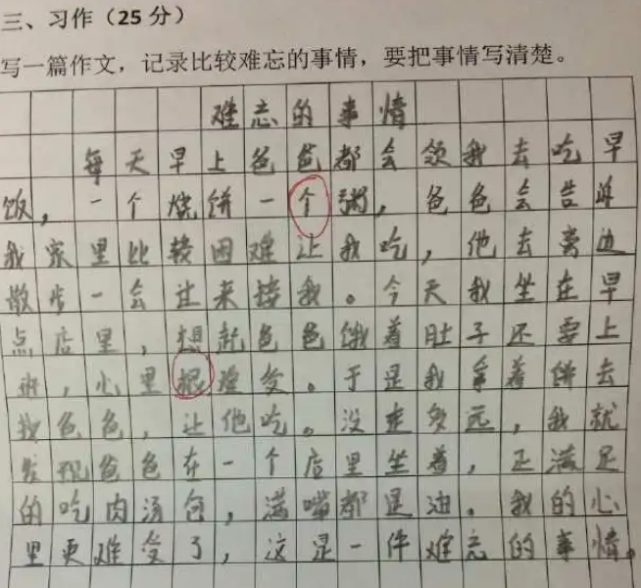 三、习作（25 分）
写一篇作文，记录比较难忘的事情，要把事情写清楚。
难忘的事情
每天早上爸爸都会领我去吃早
饭，一个烧饼一个粥，爸爸会告诉
我家里比较困难让我吃，他去旁边
散步一会过来接我。今天我坐在早
点店里，想起爸爸饿着肚子还要上
班，心里很难受。于是我拿着饼去
找爸爸，让他吃。没走多远，我就
发现爸爸在一个店里坐着，正满足
的吃肉汤包，满嘴都是油。我的心
里更难受了，这是一件难忘的事情。